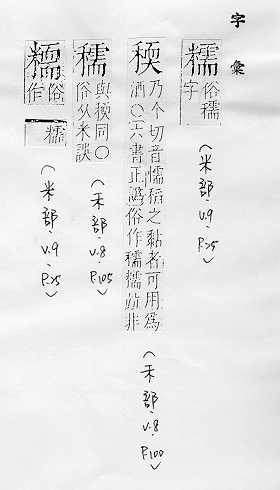 字彙
糯 俗穤
字
(米部.V.9.P.25)
稬 乃个切音懦稻之黏者可用為
酒○六書正譌俗作穤糯竝非
(禾部.V.8.P.100)
穤 與稬同○
俗从米誤
(禾部.V.8.P.105)
俗
作
糯
(米部.V.9.P.25)